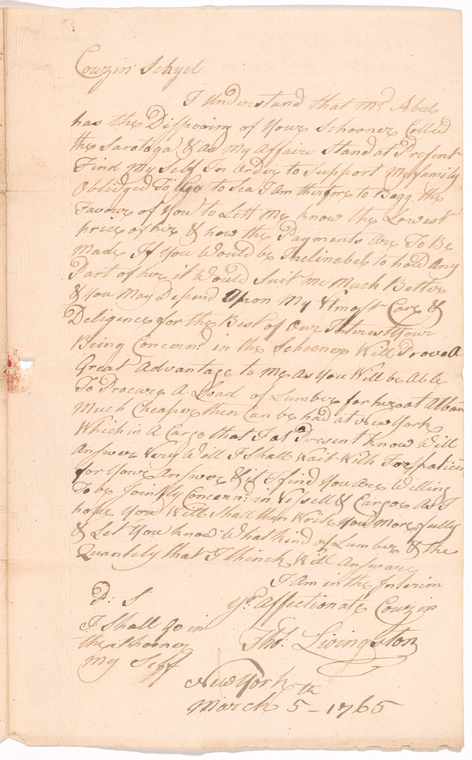 Couzin Schyel
I Understand that Mr. Abeel
has the Dissposing of Your Schooner Called
the Saratoga & as my Affairs Stand at Present
Find my Self In Order to Support My family
Obliedged To Go to Sea I Am therefore to Begg the
Favour of You to Lett Me know the Lowest
price of her & how the Payments Are To Be
Made If You Would be Inclinabel to hold Any
Part of her it Would Suit me Much Better
& You May Depend Upon My Utmost Care &
Deligence for the Best of Our Interest Your
Being Concernd in the Schooner Will Prove A
Great Advantage to me As You Will be Able
To Procure A Load of Lumber for her at Alban
Much Cheaper then Can be had at New York
Which is A Cargo that I at Present know Will
Answer Very Will I Shall Wait With
for Your Answer & if I find You Are Willing
To be Jointly Concernd in Vessell & Cargoe As I
hope You Will Shall then Write You More fully
& Let You know What kind of Lumber & the
Quantety that I think Will Answare
I Am in the Interim
Yr. Affectionate Couzin
Thos. Livingston
P: S
I Shall go in
the Shooner
My Self
New York
March 5th - 1766